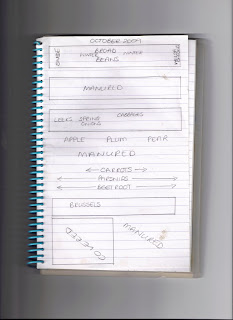 OCTOBER 2009
BROAD
BEANS
MANURED
LEEKS SPRING ONIONS CABBAGES
APPLE PLUM PEAR
MANURED
CARROTS
PARSNIPS
BEETROOT
BRUSSELS
COVERED
MANURED